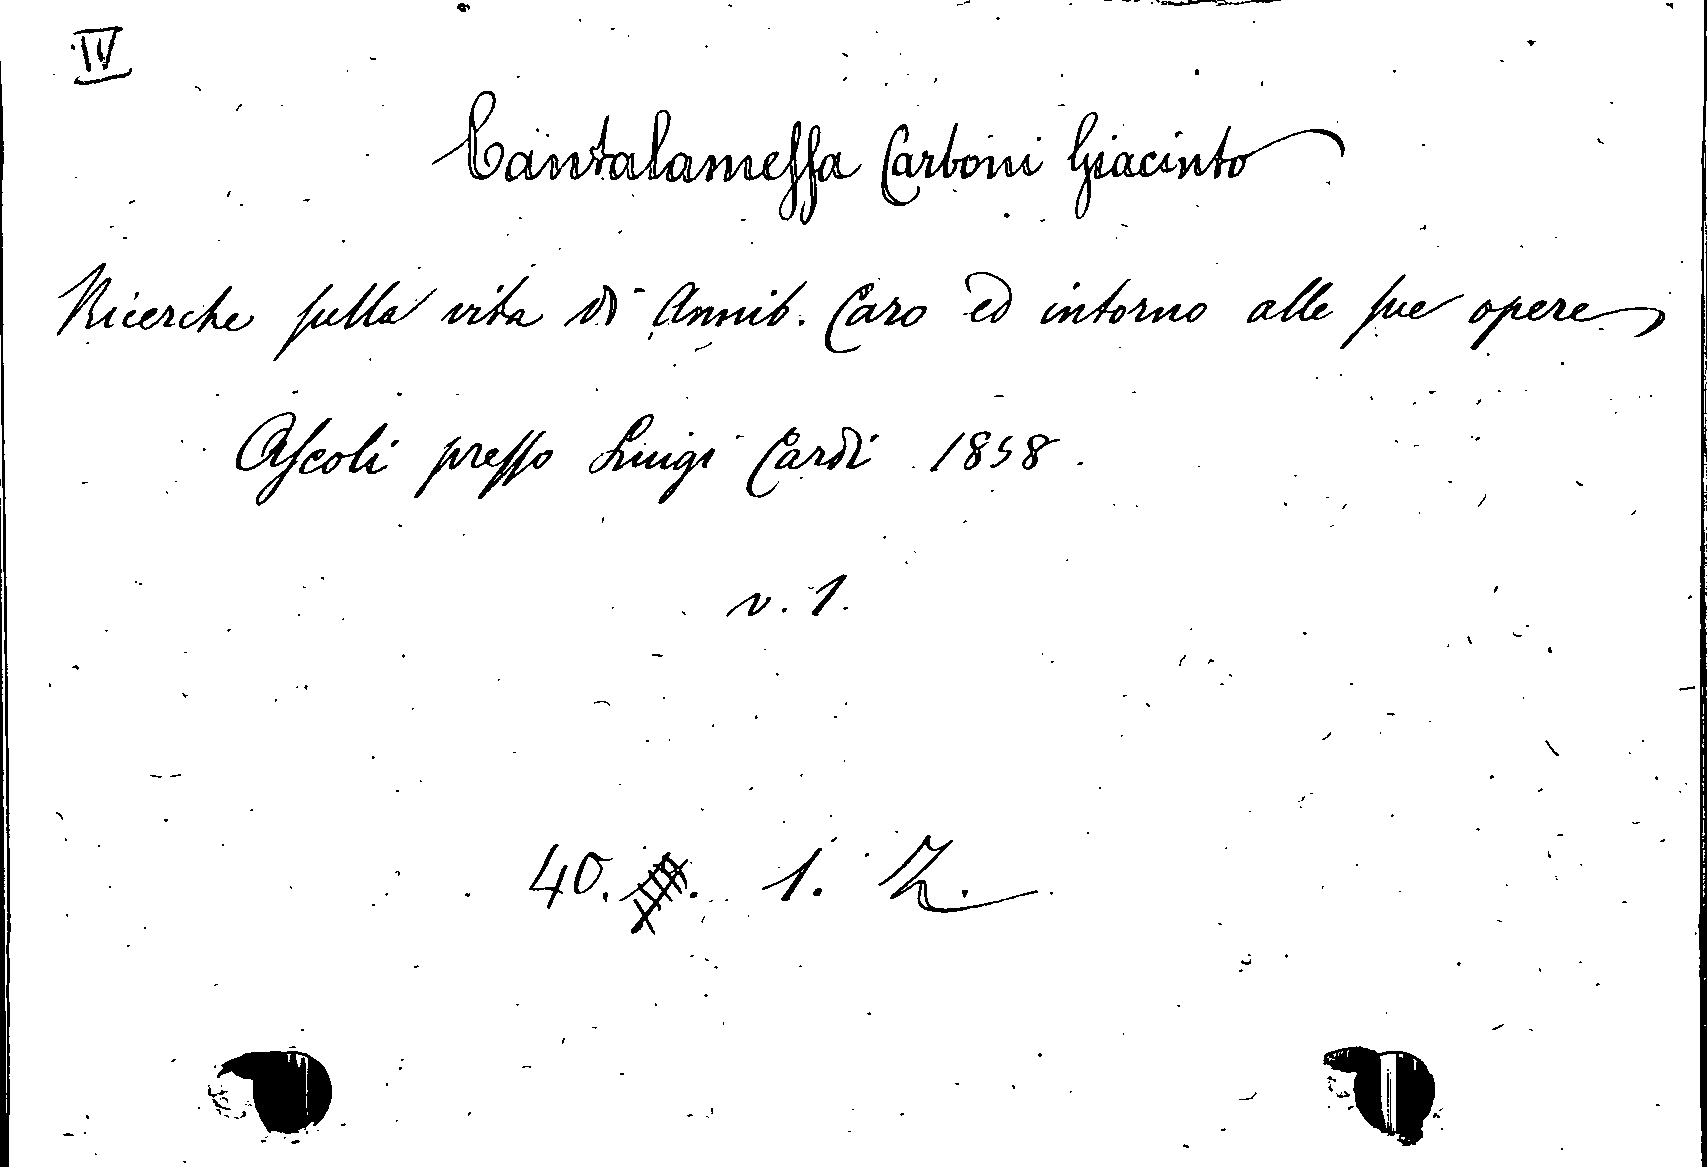 IV
Cantalamessa Carboni Giacinto
Ricerche sulla vita di Annib. Caro ed intorno alle sue opere
Ascoli presso Luigi Cardi 1858.
v. 1.
40. 1.